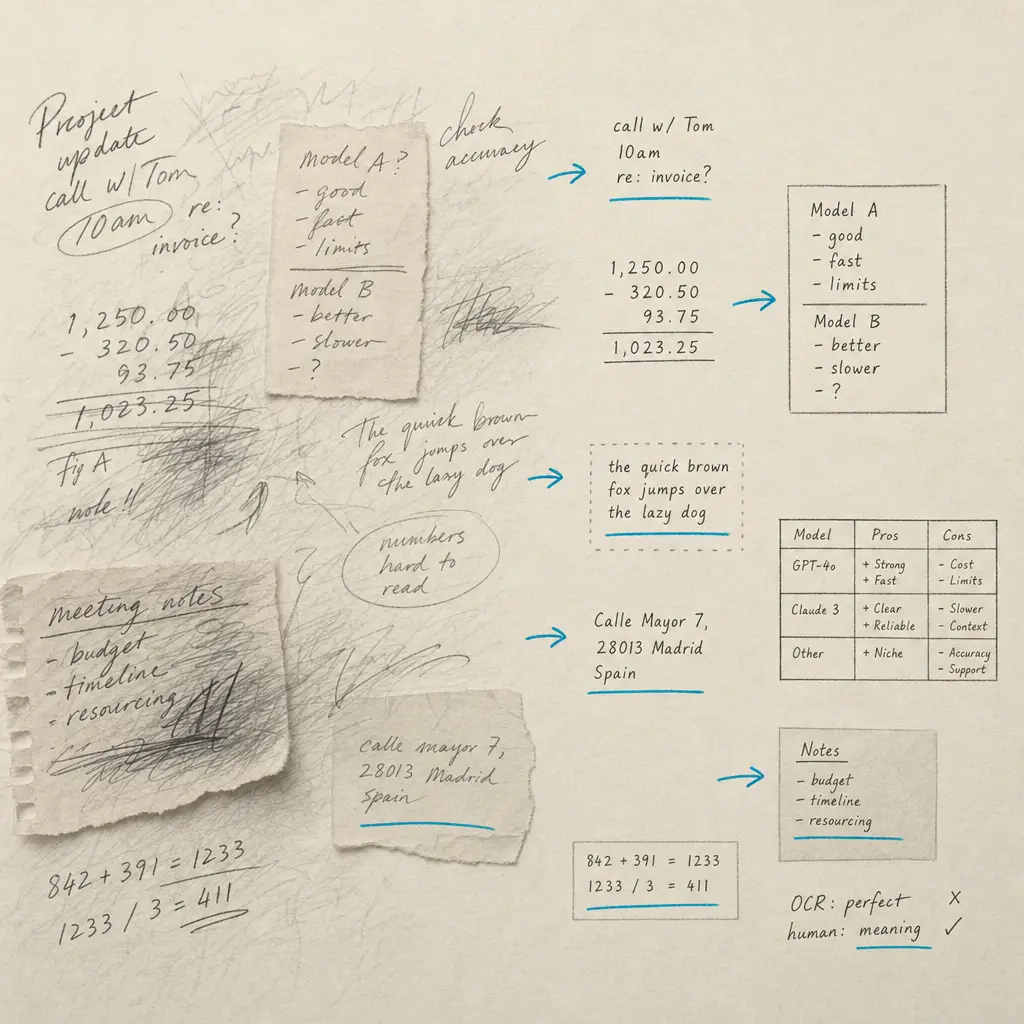 Project
update
call w/ Tom
10am re:
invoice?
1,250.00
- 320.50
93.75
1,023.25
fig A
note!!
Model A?
- good
- fast
- limits
Model B
- better
- slower
- ?
check
accuracy
The quick brown
fox jumps over
the lazy dog
numbers
hard to
read
meeting notes
- budget
- timeline
- resourcing
calle mayor 7,
28013 Madrid
Spain
842 + 391 = 1233
1233 / 3 = 411
call w/ Tom
10am
re: invoice?
1,250.00
- 320.50
93.75
1,023.25
Model A
- good
- fast
- limits
Model B
- better
- slower
- ?
the quick brown
fox jumps over
the lazy dog
Calle Mayor 7,
28013 Madrid
Spain
Model Pros Cons
GPT-4o + Strong - Cost
+ Fast - Limits
Claude 3 + Clear - Slower
+ Reliable - Context
Other + Niche - Accuracy
- Support
Notes
- budget
- timeline
- resourcing
842 + 391 = 1233
1233 / 3 = 411
OCR: perfect X
human: meaning ✓